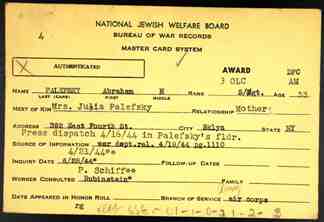 NATIONAL JEWISH WELFARE BOARD
4 BUREAU OF WAR RECORDS
MASTER CARD SYSTEM
X AUTHENTICATED
AWARD DFC
3 OLC AM
NAME PALEFSKY Abraham M RANK S/Sgt. AGE 33
LAST (CAPS) FIRST MIDDLE
NEXT OF KIN Mrs. Julia Palefsky RELATIONSHIP Mother
ADDRESS East Fourth St. CITY Bklyn STATE NY
Press dispatch 4/16/44 in Palefsky's fldr.
SOURCE OF INFORMATION war dept.rel. 4/19/44 pg.1110
4/23/44**
INQUIRY DATE 6/22/44* FOLLOW-UP DATES
P. Schiff**
WORKER CONSULTED Rubinstein* FAMILY
DATE APPEARED IN HONOR ROLL BRANCH OF SERVICE air corps